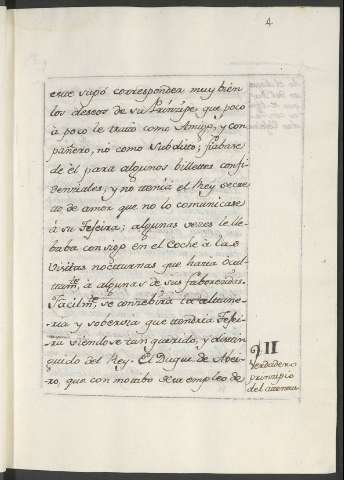 4
este supó corresponder muy bien
los deseos de su Principe, que poco
à poco le trato como Amigo, y com-
pañero, nó como Subdito; fiabase
de èl para algunos billettes confi-
denciales; y nó tenia el Rey secre
to de amor que no lo comunicase
à su Tejeira; algunas vezes le lle-
baba consigo en el Coche à las
visitas nocturnas que hacia ocul-
tam.te à algunas de sus faborecidas.
Facilm.te se concebirà la altane-
ria y sobervia que tendria Tejei-
ra viendose tan querido, y distin
guido del Rey. El Duque de Abei-
ro, que con motibo de su empleo de
VII
Verdadero
principio
del